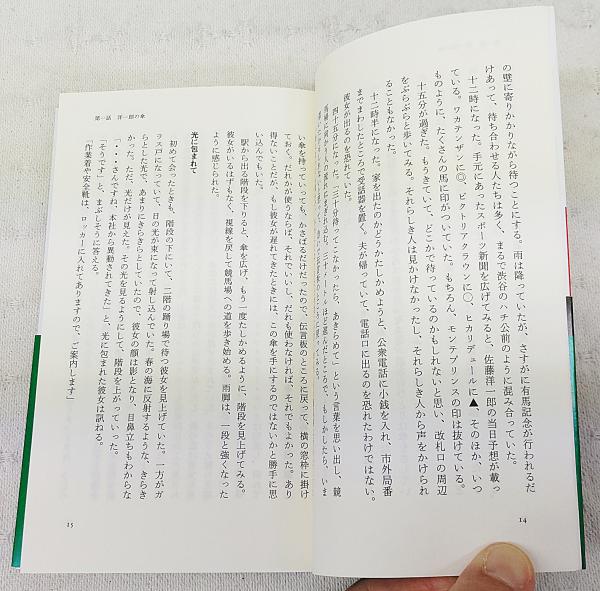 の壁に寄りかかりながら待つことにする。雨は降っていたが、さすがに有馬記念が行われるだ
けあって、待ち合わせる人たちは多く、まるで渋谷のハチ公前のように混み合っていた。
十二時になった。手元にあったスポーツ新聞を広げてみると、佐藤洋一郎の当日予想が載っ
ている。ワカテンザンに◎、ビクトリアクラウンに○、ヒカリデュールに▲、そのほか、いつ
ものように、たくさんの馬に印がついていた。もちろん、モンテプリンスの印は抜けている。
十五分が過ぎた。もうきていて、どこかで待っているのかもしれないと思い、改札口の周辺
をぶらぶらと歩いてみる。それらしき人は見かけなかったし、それらしき人から声をかけられ
こともなかった。
十二時半になった。家を出たのかどうかたしかめようと、公衆電話に小銭を入れ、市外局番
までまわしたところで受話器を置く。夫が帰っていて、電話口に出るのを恐れたわけではない。
彼女が出るのを恐れていた。
四十五分になった。三十分待ってこなかったら、あきらめて、という言葉を思い出し、競
14
第一話 洋一郎の傘
い傘を持っていっても、かさばるだけだったので、伝言板のところに戻って、横の窓枠に掛け
ておく。だれかが使うならば、それでいいし、だれも使わなければ、それでもよかった。あり
得ないことだが、もし彼女が遅れてきたときには、この傘を手にするのではないかと勝手に思
い込んでもいた。
駅から出る階段を下りると、傘を広げ、もう一度たしかめるように、階段を見上げてみる。
彼女がいるはずもなく、視線を戻して競馬場への道を歩き始める。雨脚は、一段と強くなった
ように感じられた。
光に包まれて
初めて会ったときも、階段の下にいて、二階の踊り場で待つ彼女を見上げていた。一方がガ
ラス戸になっていて、日の光が束になって射し込んでいた。春の海に反射するような、きらき
らとした光で、あまりにきらきらとしていたので、彼女の顔は影となり、目鼻立ちもわからな
かった。ただ、光だけが見えた。その光を見るようにして、階段を上がっていった。
「・・・・さんですね、本社から異動されてきた」と、光に包まれた彼女は訊ねる。
「そうです」と、まぶしそうに答える。
「作業着や安全靴は、ロッカーに入れてありますので、ご案内します」
15